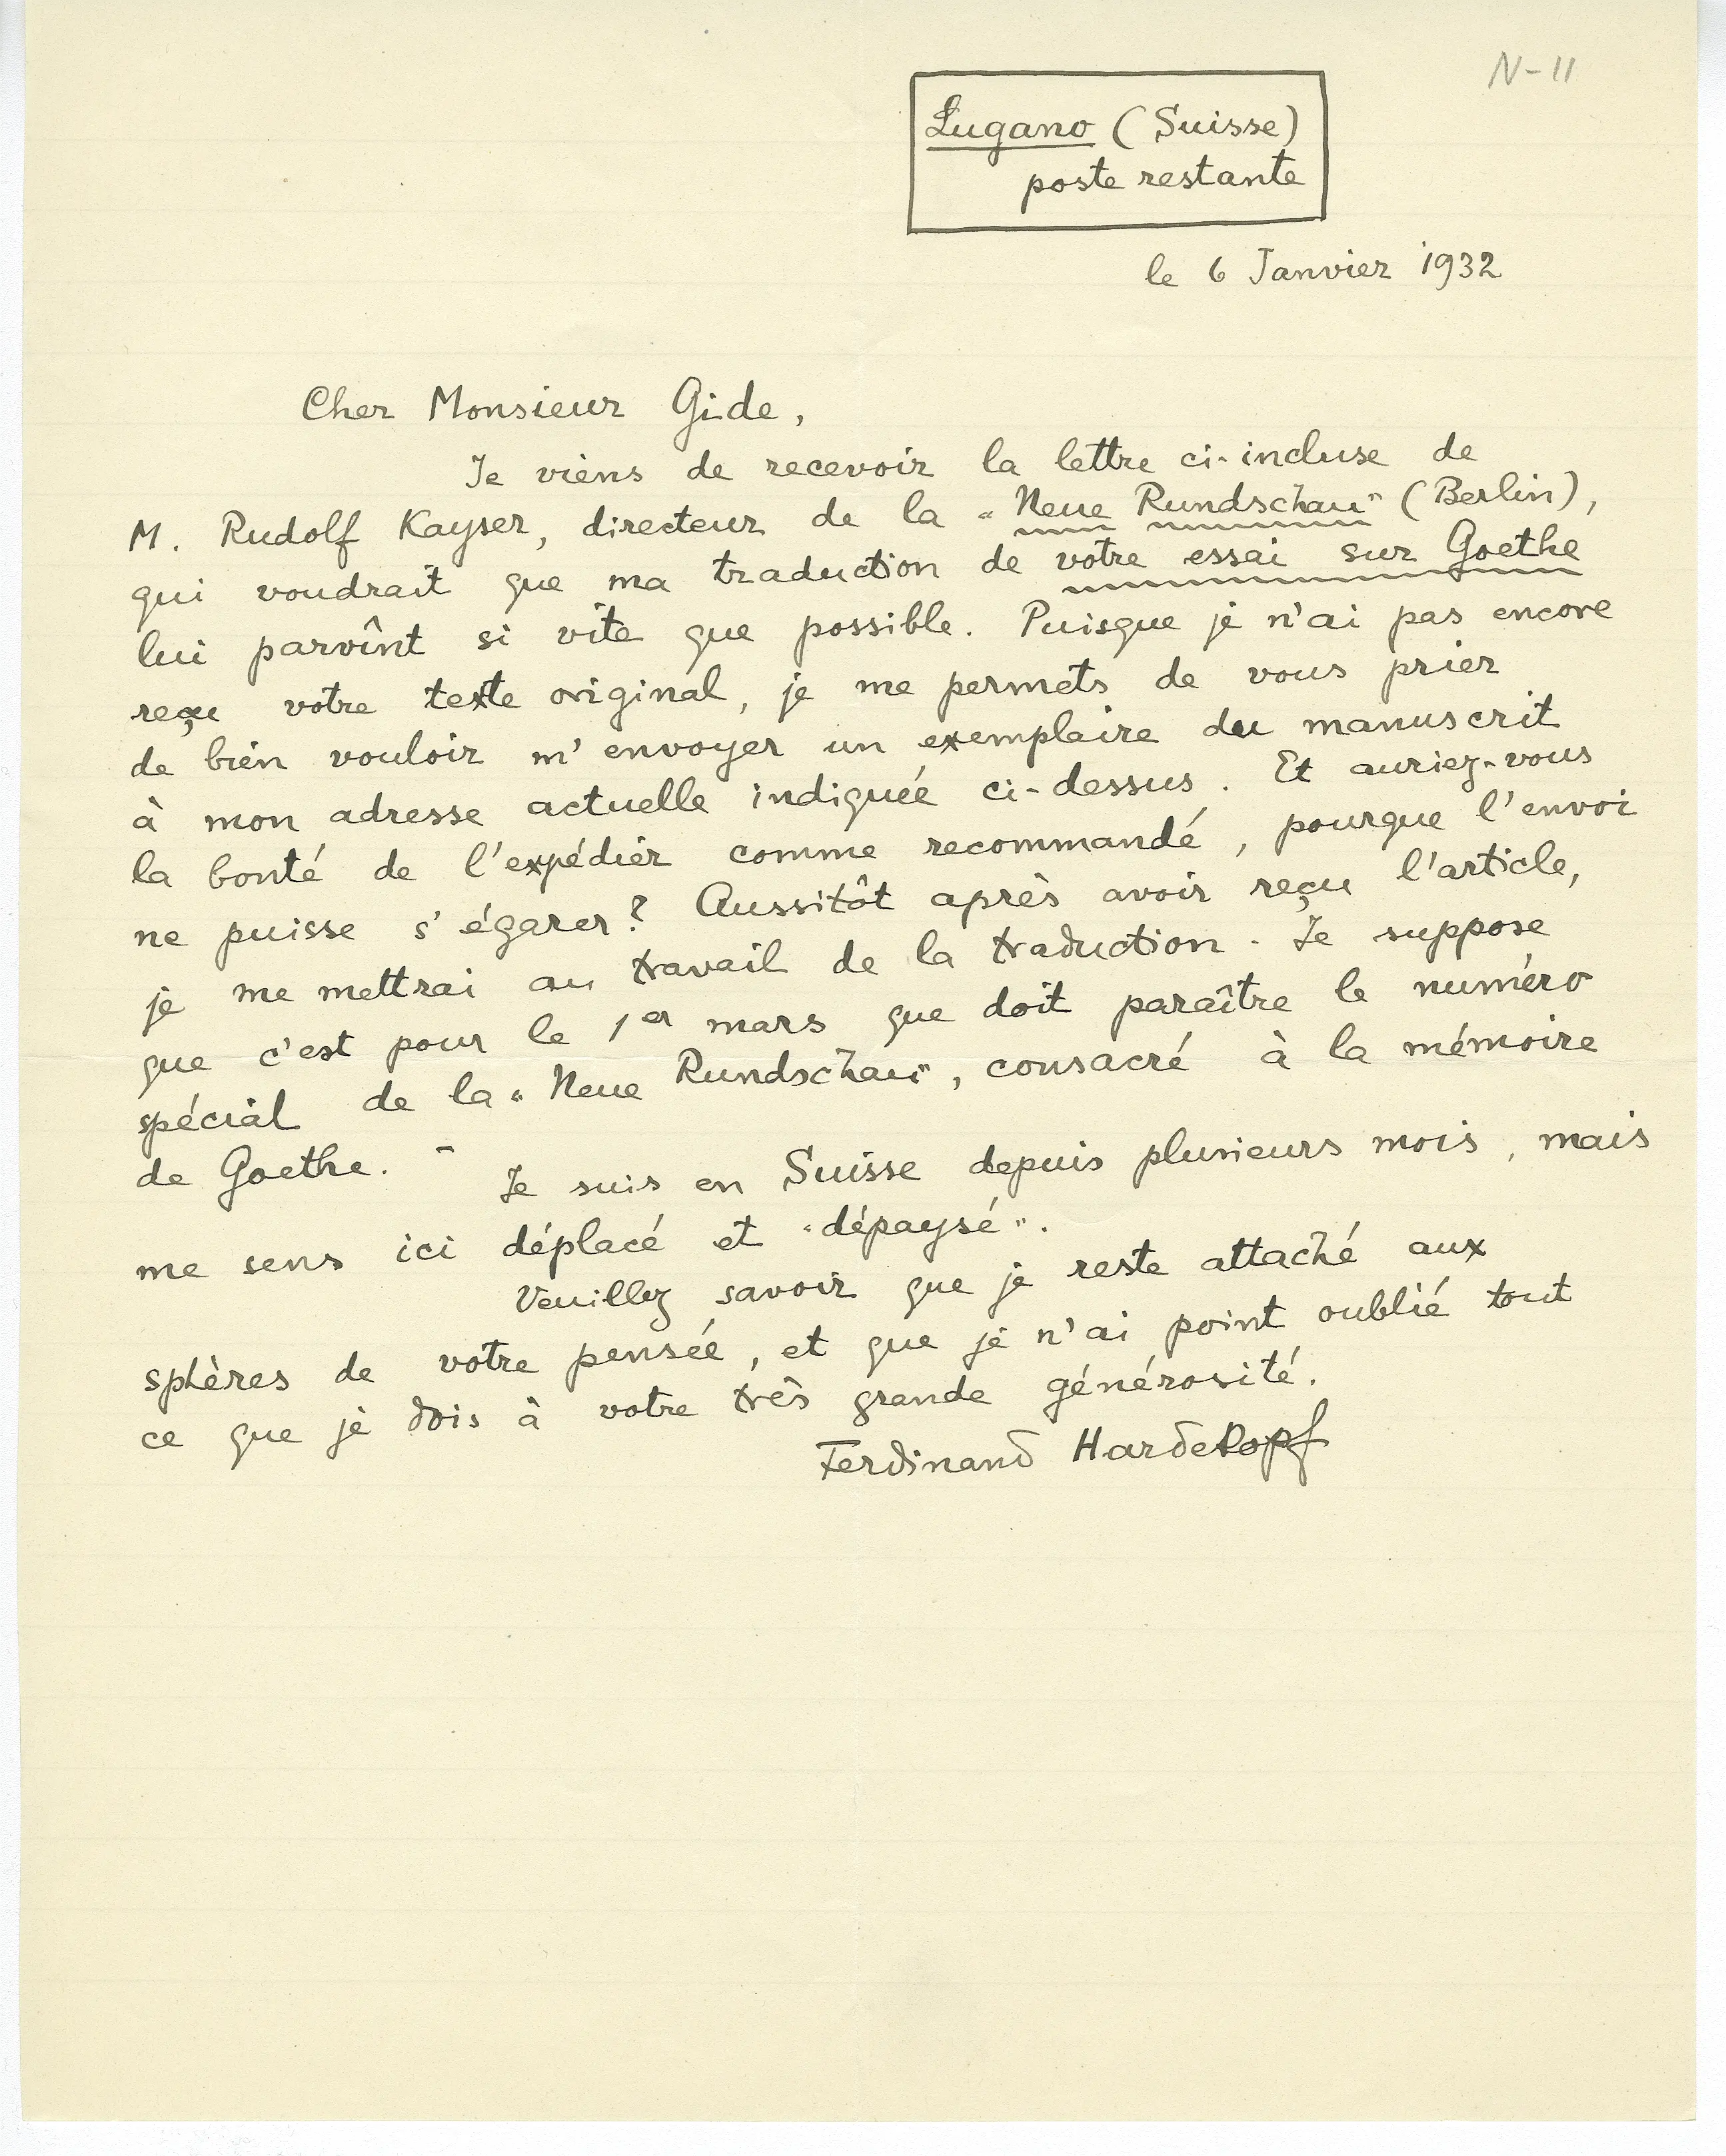 N-11
Lugano (Suisse)
poste restante
le 6 Janvier 1932
Cher Monsieur Gide,
Je viens de recevoir la lettre ci-incluse de
M. Rudolf Kayser, directeur de la "Neue Rundschau" (Berlin),
qui voudrait que ma traduction de votre essai sur Goethe
lui parvînt si vite que possible. Puisque je n'ai pas encore
reçu votre texte original, je me permets de vous prier
de bien vouloir m'envoyer un exemplaire du manuscrit
à mon adresse actuelle indiquée ci-dessus. Et auriez-vous
la bonté de l'expédier comme recommandé, pourque l'envoi
ne puisse s'égarer? Aussitôt après avoir reçu l'article,
je me mettrai au travail de la traduction. Je suppose
que c'est pour le 1er mars que doit paraître le numéro
spécial de la "Neue Rundschau", consacré à la mémoire
de Goethe. - Je suis en Suisse depuis plusieurs mois, mais
me sens ici déplacé et "dépaysé".
Veuillez savoir que je reste attaché aux
sphères de votre pensée, et que je n'ai point oublié tout
ce que je dois à votre très grande générosité.
Ferdinand Hardekopf